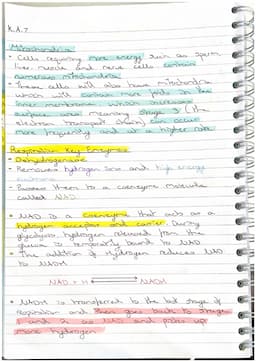 K.A.7
Mitochondria
• Cells requiring more energy such as sperm
liver, muscle and nerve cells contain
numerous mitochondria
• These cells will also have mitochondria
which will contain more folds in the
inner membrane which increases
surface area meaning stage 3 (the
electron transport chain) can occur
more frequently and at a higher rate.
Respiration Key Enzymes
• Dehydrogenase
- Removes hydrogen ions and high energy
- Passes them to a coenzyme molecule
called NAD
• NAD is a coenzyme that acts as a
hydrogen acceptor and carrier. During
glycolysis hydrogen released from the
glucose is temporarily bound to NAD
• The addition of Hydrogen reduces NAD
to NADH
NAD + H ⇌ NADH
• NADH is transferred to the last stage of
respiration and then goes back to stages
1 and 2 as NAD and picks up
more hydrogen